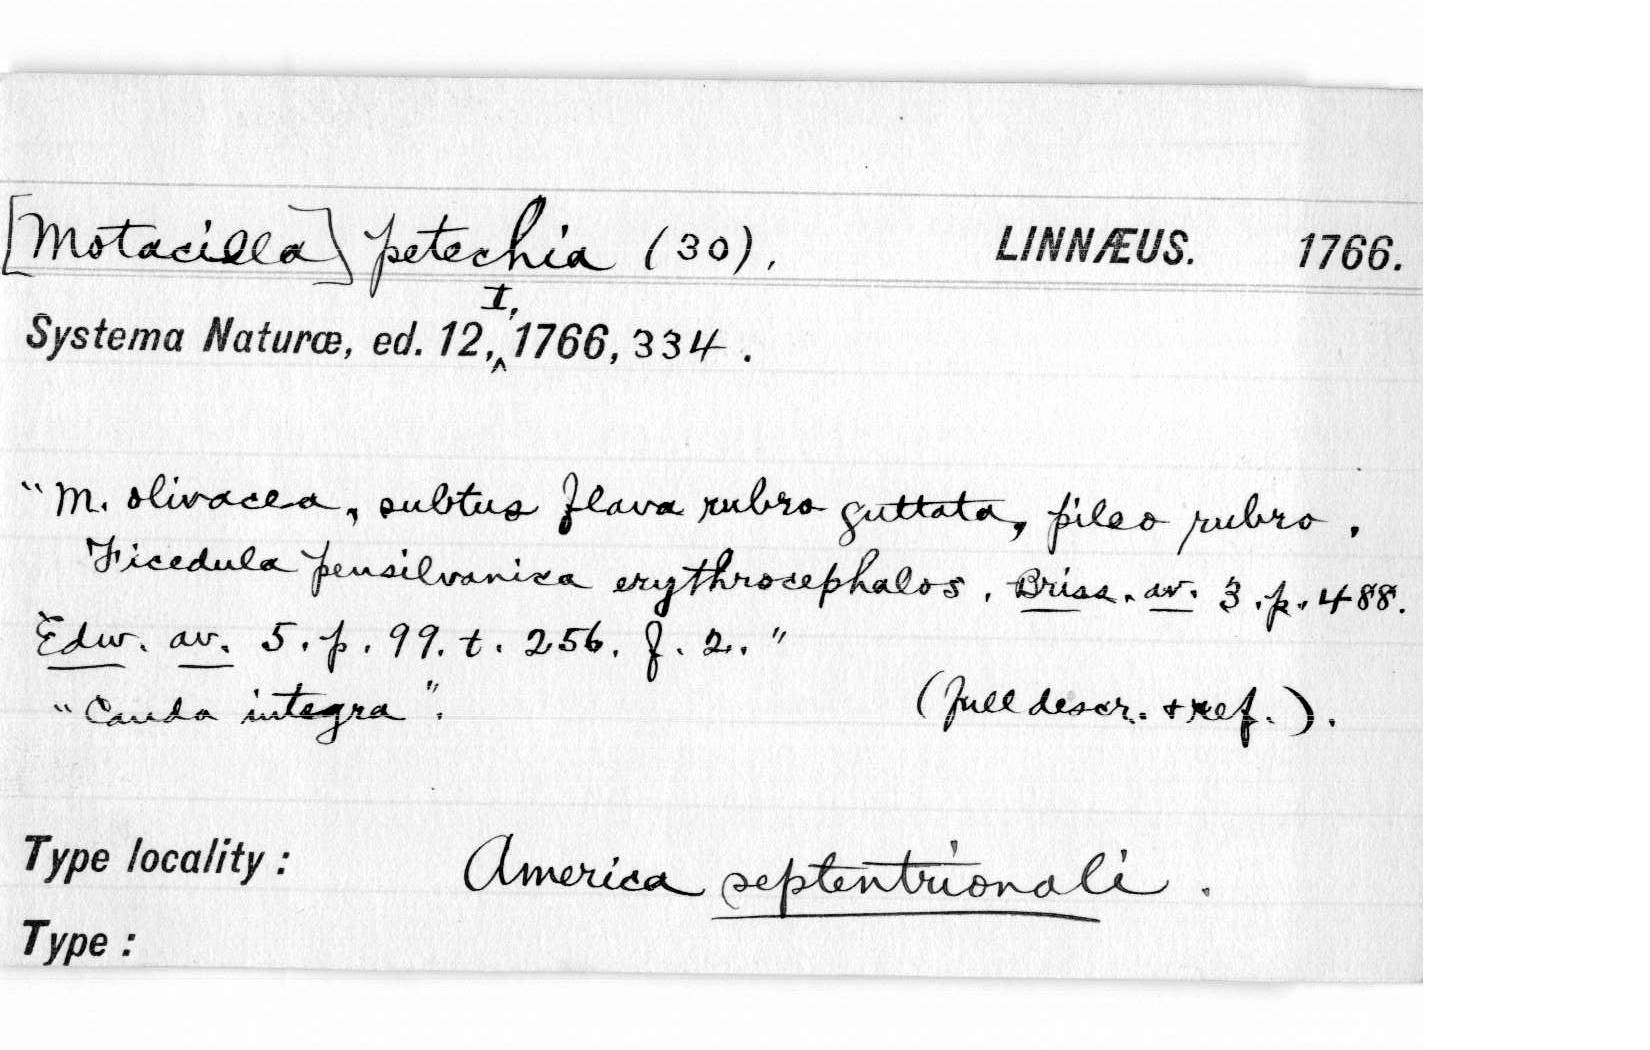 [Motacilla] petechia (30), LINNÆUS. 1766.
Systema Naturæ, ed. 12, I, 1766, 334.
"M. olivacea, subtus flava rubro guttata, pileo rubro.
Ficedula pensilvanica erythrocephalos. Briss. av. 3. p. 488.
Edw. av. 5. p. 99. t. 256. f. 2."
"Cauda integra". (full descr. + ref.).
Type locality: America septentrionali.
Type: